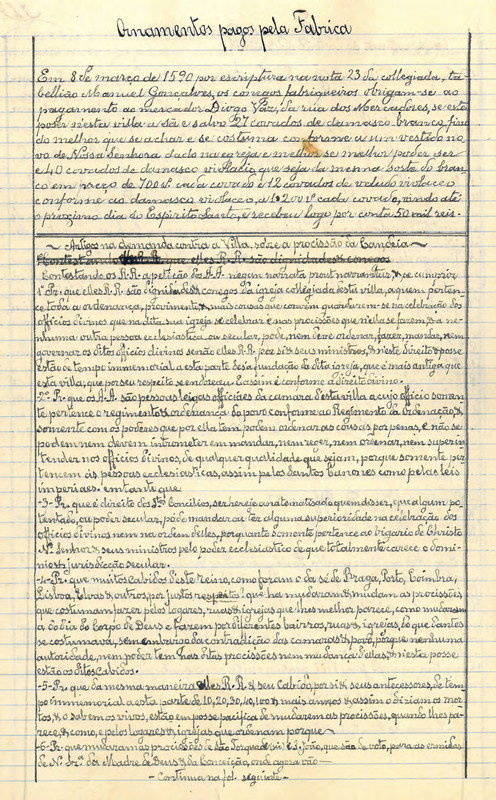 Ornamentos pagos pela Fabrica
Em 8 de março de 1590 por escriptura na nota 23 da collegiada, ta-
bellião Manuel Gonçalves, os conegos fabriqueiros obrigam-se ao
pagamento ao mercador Diogo Vaz, da rua dos Mercadores, se este
poser nesta villa a são e salvo 27 covados de damasco branco, fino
do melhor que se achar e se costuma conforme a um vestido no-
vo de Nossa Senhora dado na egreja e melhor se melhor poder ser
e 40 covados de damasco violatio que seja da mesma sorte do bran-
co em preço de 700 rs cada covado e 12 covados de veludo violaceo
conforme ao damasco violaceo, a 1$200 rs cada covado, vindo até
o proximo dia do Espirito Santo, e recebeu logo por conta 50 mil reis.
~ Artigos na demanda contra a Villa, sobre a procissão da Candeia ~
Contestando os R.R. a petição do A.A. negam narrata prout narrantur, & se cumprir
1º Pr. que elles R.R. são dignidades & conegos da igreja collegiada desta villa, a quem perten-
ce toda a ordenança, provimento, & mais cousas que convem guardarem-se na celebração dos
officios divinos que na dita sua igreja se celebrar e nas procissões que n'ella se fazem, & a ne-
nhuma outra pessoa ecclesiastica, ou secular, pode, nem deve ordenar, fazer, mandar, nem
governar os ditos officios divinos senão elles R.R. por si & seus ministros, & n'este direito & posse
estão de tempo immemorial a esta parte desda fundação da dita igreja, que é mais antiga que
esta villa, que por seu respeito se endereçou. E assim é conforme a direito divino.
-2º Pr. que os A.A. são pessoas leigas officiaes da camara d'esta villa a cujo officio somen-
te pertence o regimento & ordenança do povo conforme ao Regimento da Ordenação, &
somente com os poderes que por ella tem podem ordenar as coisas por penas, e não se
podem nem devem intrometer em mandar, nem reger, nem ordenar, nem superin-
tender nos officios divinos, de qualquer qualidade que sejam, porque somente per-
tencem ás pessoas ecclesiasticas, assim pelos Santos Canones como pelas leis
imperiaes. emtanto que
-3- Pr. que é direito dos Stos Concilios, ser hereje anatematisado quem disser, que algum po-
tentado, ou poder secular, pode mandar ou ter alguma superioridade na celebração dos
officios divinos nem na ordem delles, porquanto somente pertence ao Vigario de Christo
N.º Senhor & seus ministros pelo poder ecclesiastico de que totalmente carece o domi-
nio & jurisdicção secular.
-4- Pr. que muitos Cabidos deste reino, como foram o da sé de Braga, Porto, Coimbra,
Lisboa, Elvas & outros, por justos respeitos que ha mudaram & mudam as procissões
que costumam fazer pelos logares, ruas & igrejas que lhes melhor parece, como mudaram
a do dia do Corpo de Deus e fazem por differentes bairros, ruas & igrejas, do que d'antes
se costumava, sem embargo da contradição das camaras & povo, porque nenhuma
autoridade, nem poder tem nas ditas procissões nem mudança d'ellas, & n'esta posse
estão os ditos Cabidos.
-5- Pr. que da mesma maneira elles R.R. & seu Cabido, por si & seus antecessores, de tem-
po immemorial a esta parte de 10, 20, 30, 40, 100 & mais annos & assim o diziam os mor-
tos, & o sabem os vivos, estão em posse pacifica de mudarem as procissões, quando lhes pa-
rece, & como, e pelos logares & igrejas que ordenam porque
-6- Pr. que mudaram as procissões de São Jorge & S. João, que são de voto, para as ermidas
de N. Srª. da Madre de Deus & da Conceição, onde agora vão —
- Continua na fol. seguinte -